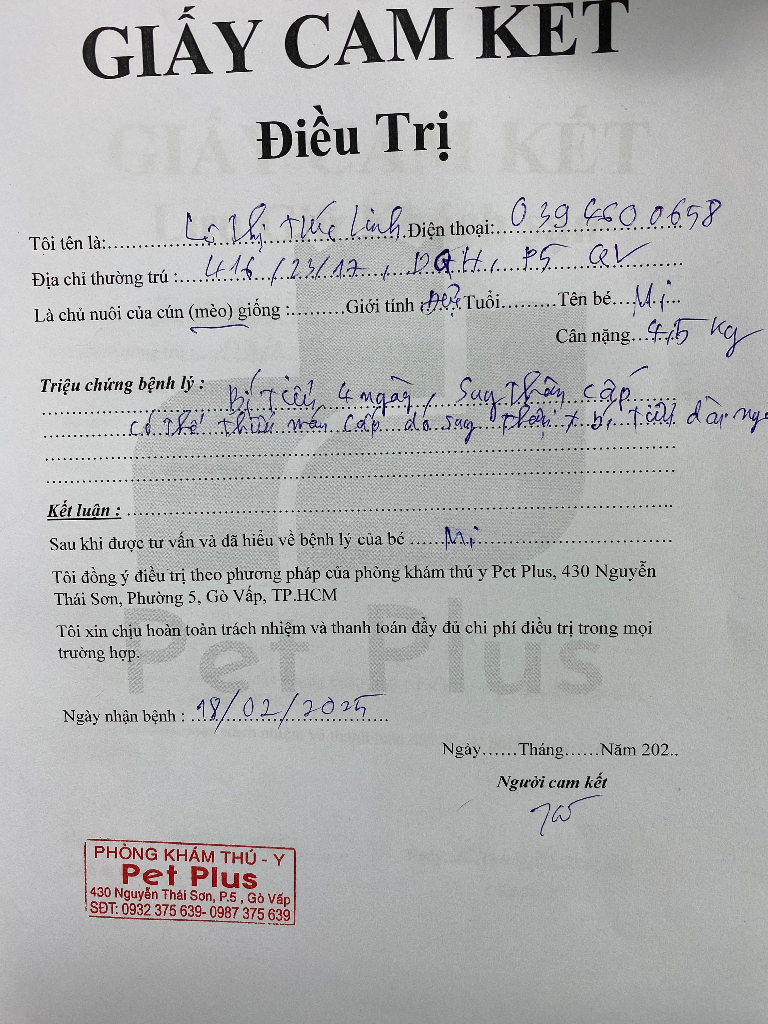 GIẤY CAM KẾT
Điều Trị
Tôi tên là:.......Lê Thị Trúc Linh.Điện thoại:..039 460 0658
Địa chỉ thường trú :...416/23/17, DQH, P5 GV
Là chủ nuôi của cún (mèo) giống :.........Giới tính :Đực.Tuổi.........Tên bé...Mi...
Cân nặng...4,5 kg
Triệu chứng bệnh lý : Bí tiểu 4 ngày, Suy thận cấp
có thể thiếu máu cấp do suy thận + bí tiểu dài ng
Kết luận :
Sau khi được tư vấn và đã hiểu về bệnh lý của bé ......Mi
Tôi đồng ý điều trị theo phương pháp của phòng khám thú y Pet Plus, 430 Nguyễn
Thái Sơn, Phường 5, Gò Vấp, TP.HCM
Tôi xin chịu hoàn toàn trách nhiệm và thanh toán đầy đủ chi phí điều trị trong mọi
trường hợp.
Pet Plus
Ngày nhận bệnh : 18/02/2025
Ngày......Tháng......Năm 202..
Người cam kết
PHÒNG KHÁM THÚ - Y
Pet Plus
430 Nguyễn Thái Sơn, P.5 , Gò Vấp
SĐT: 0932 375 639- 0987 375 639